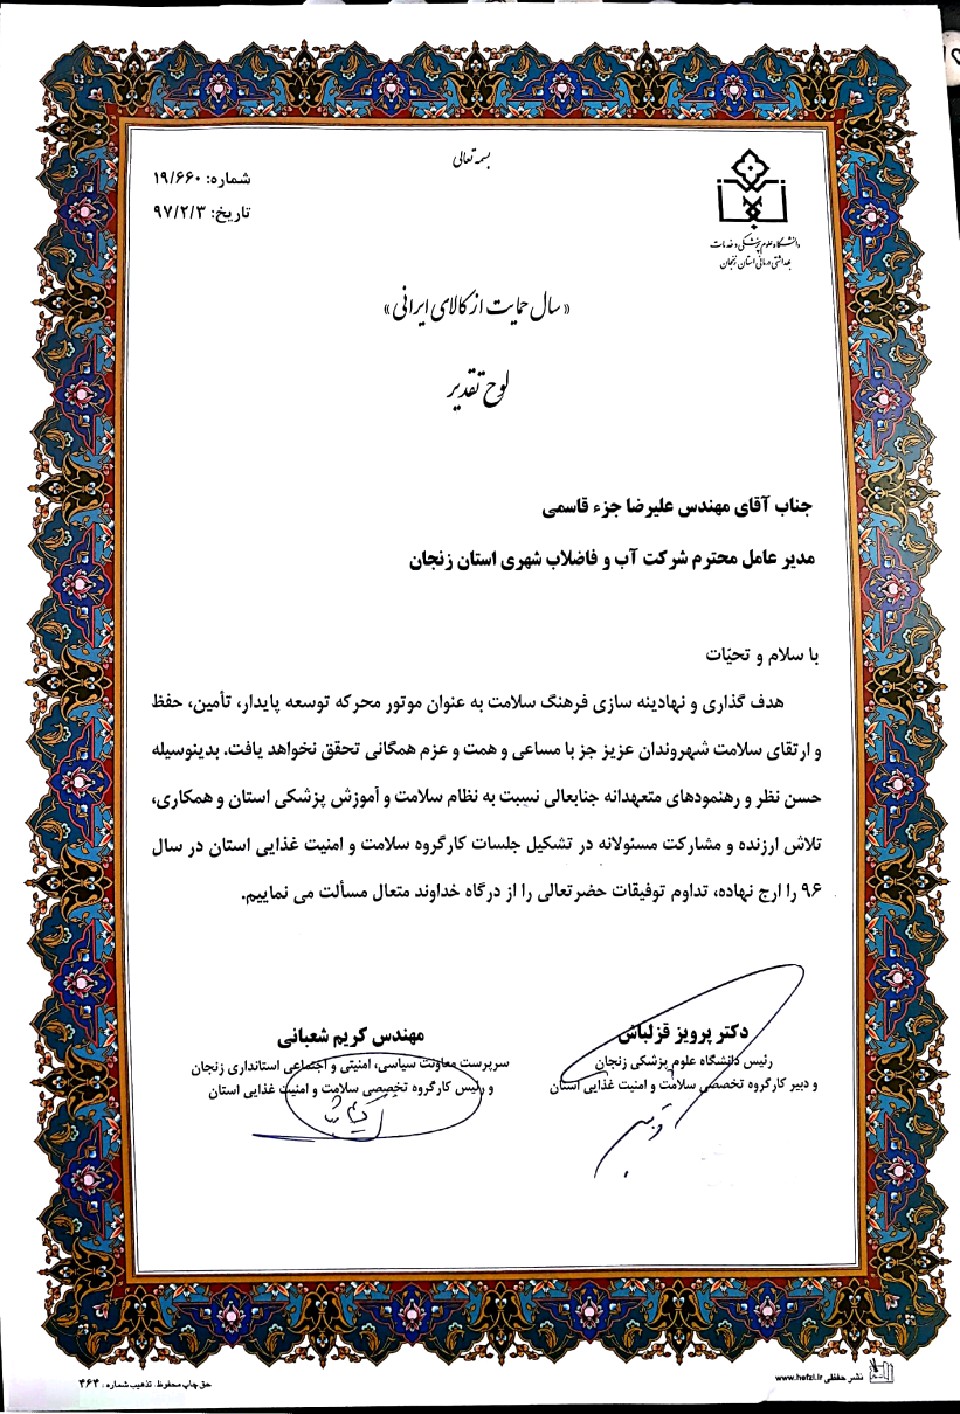 بسمه تعالی
شماره: ۱۹/۶۶۰
تاریخ: ۹۷/۲/۳
دانشگاه علوم پزشکی و خدمات
بهداشتی درمانی استان زنجان
«سال حمایت از کالای ایرانی»
لوح تقدیر
جناب آقای مهندس علیرضا جزء قاسمی
مدیر عامل محترم شرکت آب و فاضلاب شهری استان زنجان
با سلام و تحیّات
هدف گذاری و نهادینه سازی فرهنگ سلامت به عنوان موتور محرکه توسعه پایدار، تأمین، حفظ
و ارتقای سلامت شهروندان عزیز جز با مساعی و همت و عزم همگانی تحقق نخواهد یافت. بدینوسیله
حسن نظر و رهنمودهای متعهدانه جنابعالی نسبت به نظام سلامت و آموزش پزشکی استان و همکاری،
تلاش ارزنده و مشارکت مسئولانه در تشکیل جلسات کارگروه سلامت و امنیت غذایی استان در سال
۹۶ را ارج نهاده، تداوم توفیقات حضرتعالی را از درگاه خداوند متعال مسألت می نماییم.
دکتر پرویز قزلباش
رئیس دانشگاه علوم پزشکی زنجان
و دبیر کارگروه تخصصی سلامت و امنیت غذایی استان
مهندس کریم شعبانی
سرپرست معاونت سیاسی، امنیتی و اجتماعی استانداری زنجان
و رئیس کارگروه تخصصی سلامت و امنیت غذایی استان
نشر حفظی www.hefzi.ir
حق چاپ محفوظ، تذهیب شماره: ۴۶۴